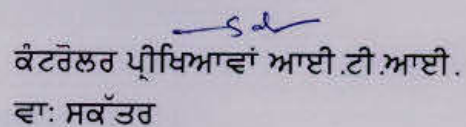 Sd
ਕੰਟਰੋਲਰ ਪ੍ਰੀਖਿਆਵਾਂ ਆਈ.ਟੀ.ਆਈ.
ਵਾ: ਸਕੱਤਰ